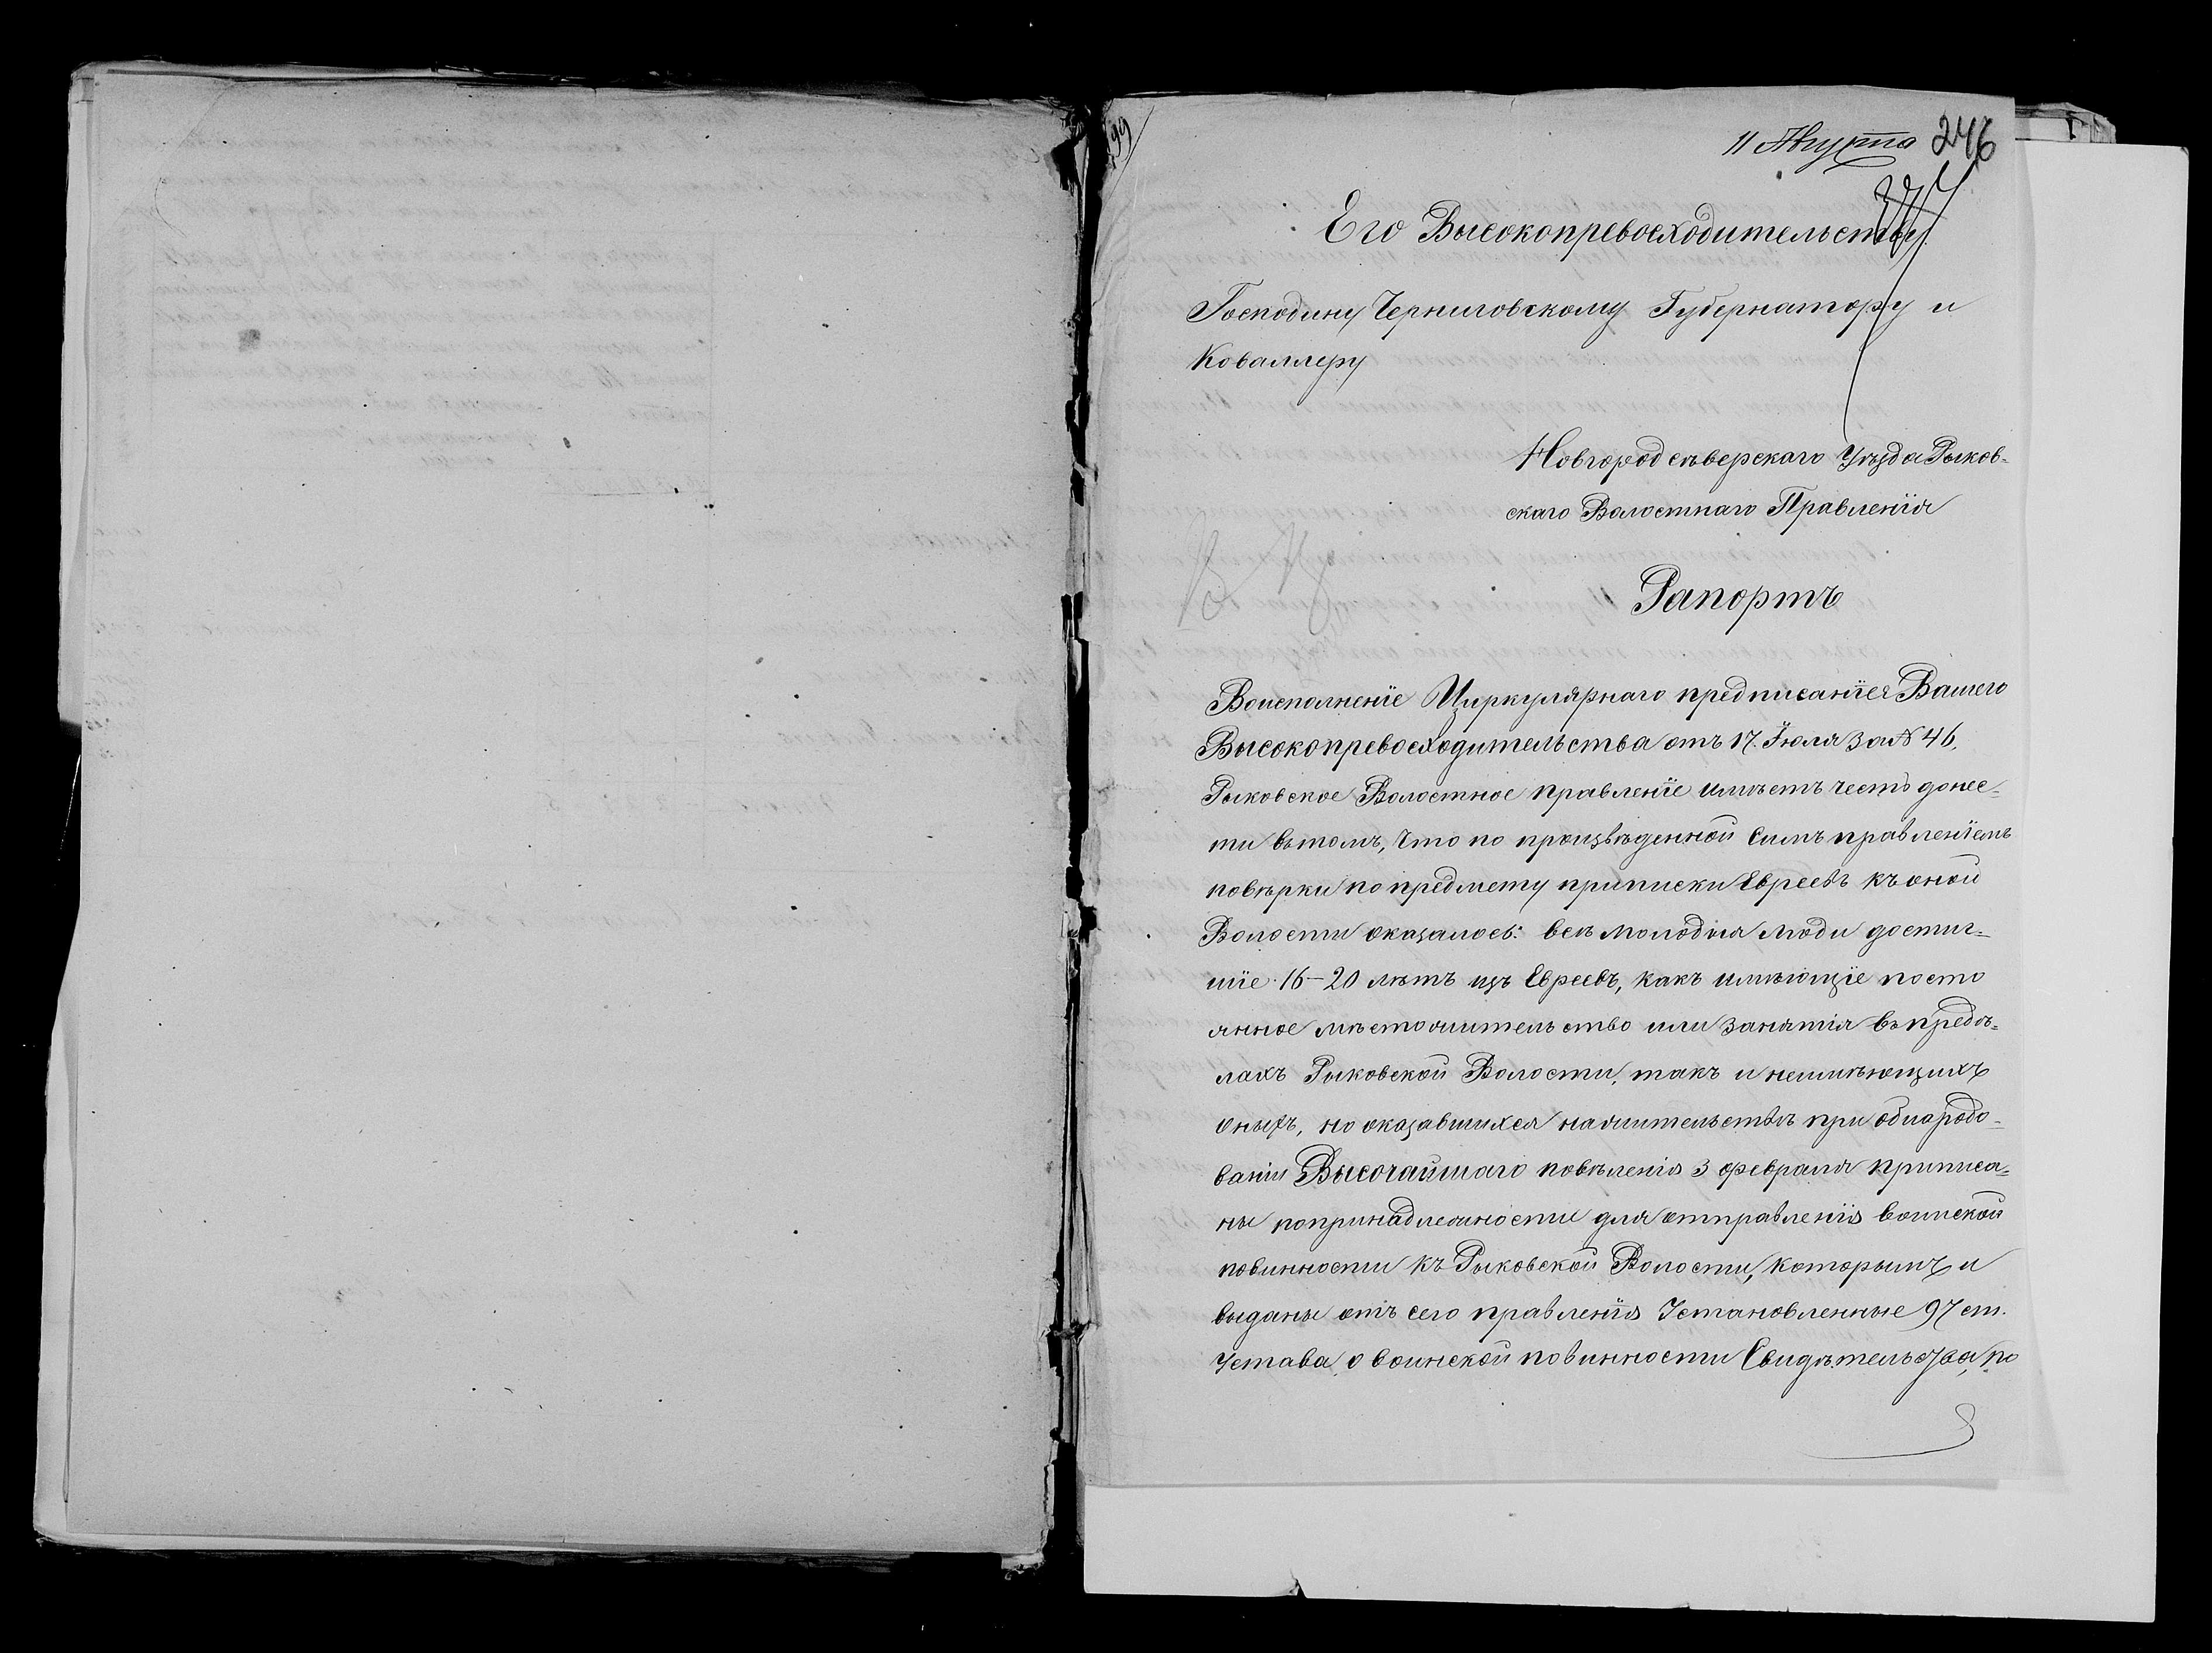 11 Августа 246
Его Высокопревосходительству
Господину Черниговскому Губернатору и
Коваллеру
Новгородсѣверскаго Уѣзда Рыков-
скаго Волостнаго Правленія
Рапортъ
Воисполненіе Циркулярнаго предписанія Вашего
Высокопревосходительства отъ 17. Іюля за № 46,
Рыковское Волостное правленіе имѣетъ честь донес-
ти вътомъ, Что по произвѣденной симъ правленіемъ
повѣрки по предмету приписки Евреевъ къ оной
Волости оказалось: всѣ молодыя люди достиг-
шіе 16-20 лѣтъ изъ Евреевъ, какъ имѣющіе посто
янное мѣстожительство или занятія въ предѣ-
лахъ Рыковской Волости, такъ и неимѣющихъ
оныхъ, но оказавшихся нажительствѣ при обнародо-
ваніи Высочайшаго повѣленія 3 февраля приписа-
ны попринадлежности для отправленія воинской
повинности къ Рыковской Волости, которымъ и
выданы отъ сего правленія Установленные 97 ст.
Устава о воинской повинности Свидѣтельства, по